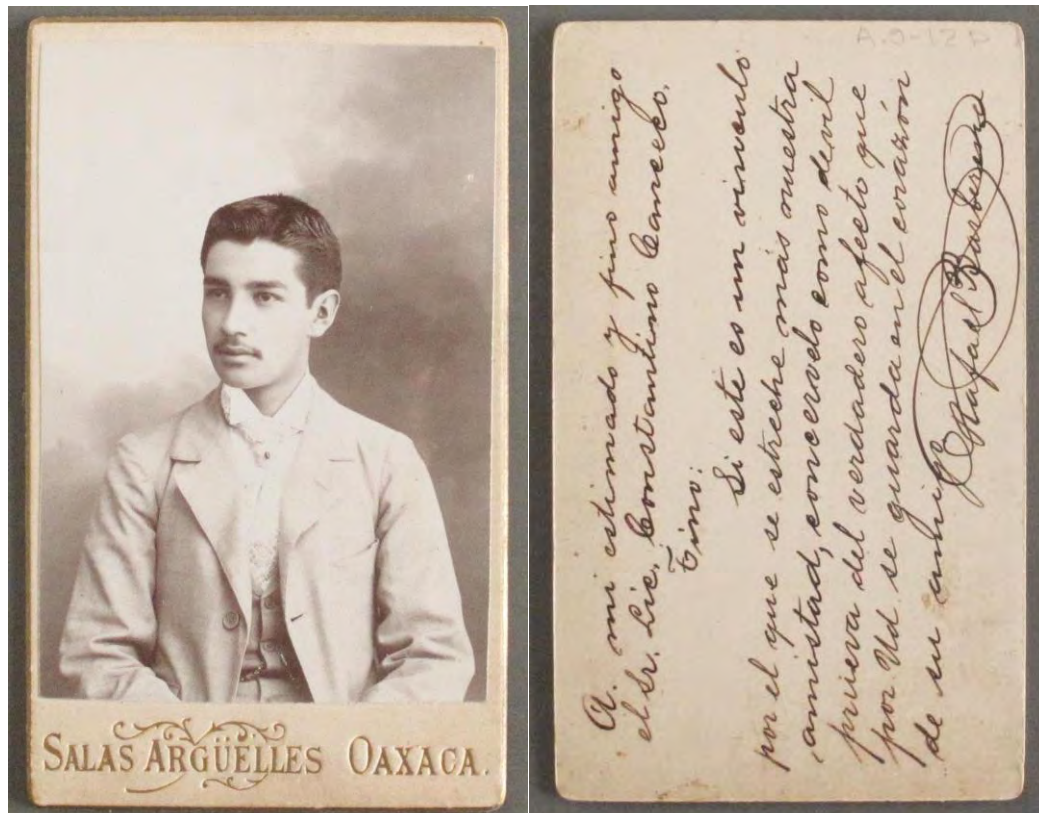 SALAS ARGÜELLES OAXACA.
A.O-12P
A. mi estimado y fino amigo
el Sr. Lic. Constantino Canseco.
Tino:
Si este es un vinculo
por el que se estreche más nuestra
amistad, concervelo como devil
prueva del verdadero afecto que
por Ud se guarda en el corazón
de su amigo
Rafael Barbosa